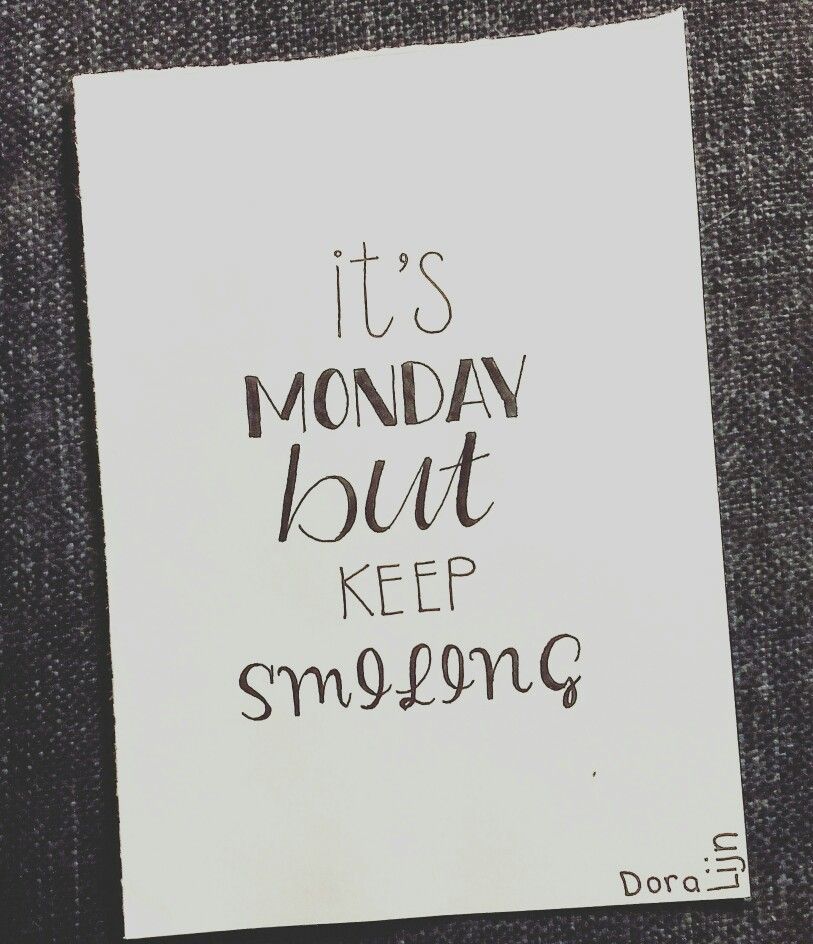 it's
MONDAY
but
KEEP
SMILING
Dora
Lijn